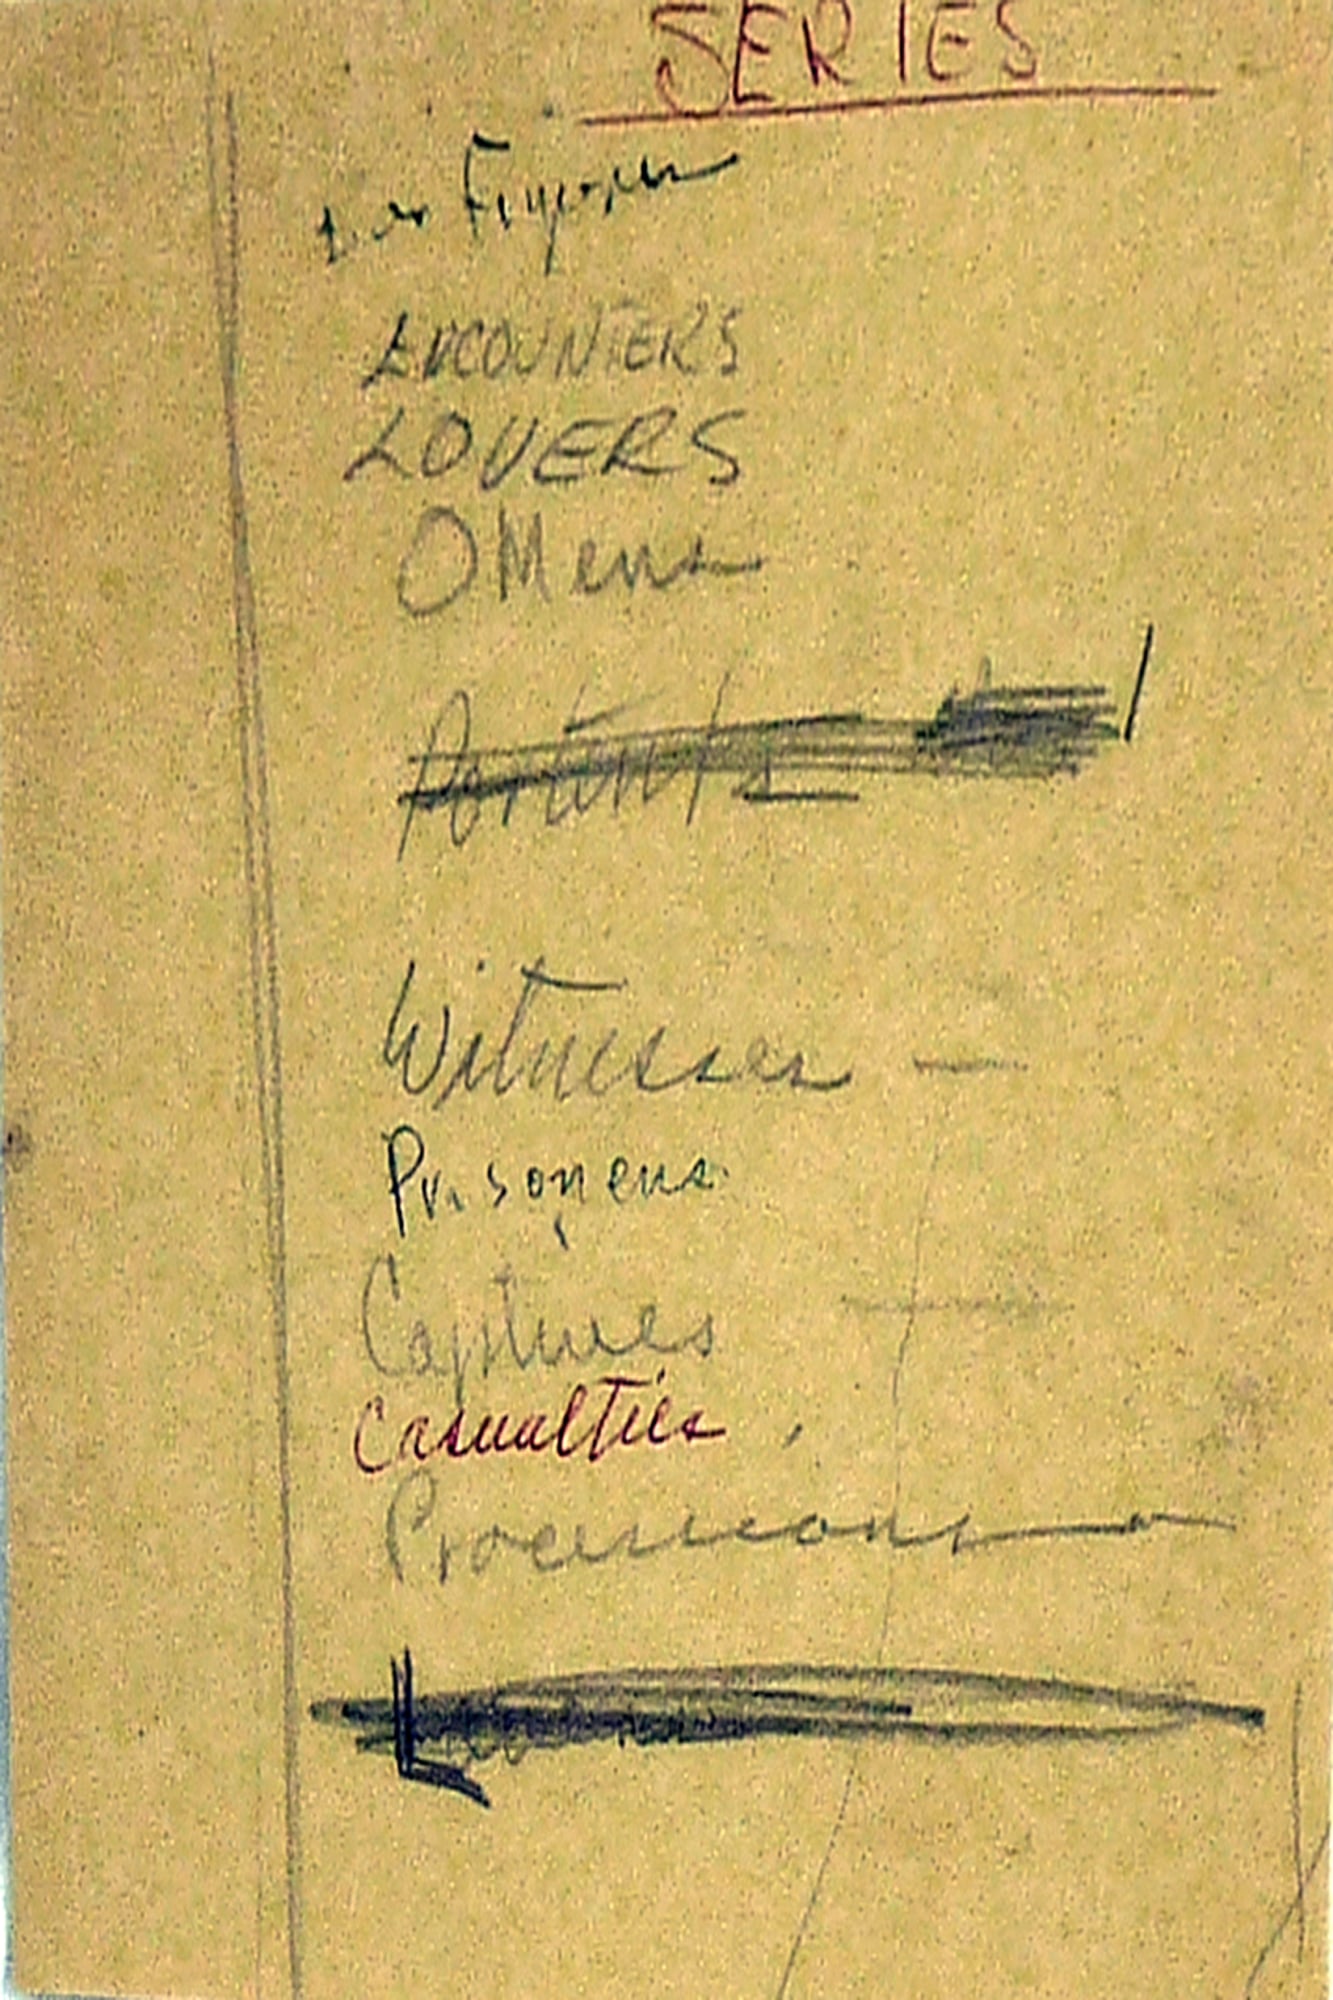 SERIES
Figures
ENCOUNTERS
LOVERS
OMens
Portents
Witnesses —
Prisoners
Captives
Casualties
Processions